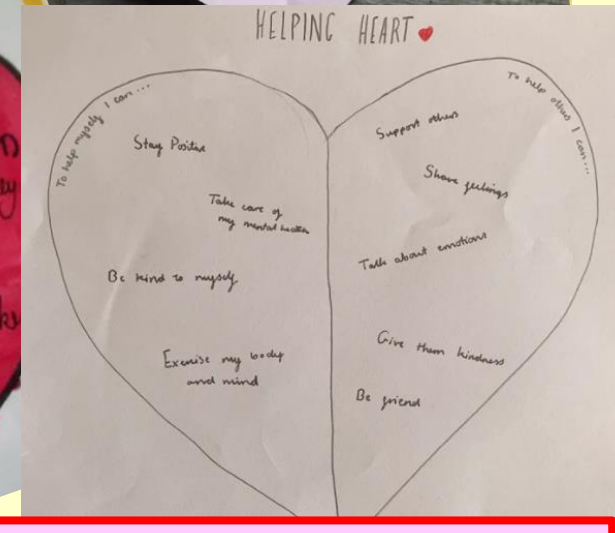 HELPING HEART
To help myself I can...
Stay Positive
Take care of
my mental health
Be kind to myself
Exercise my body
and mind
To help others I can....
Support others
Share feelings
Talk about emotions
Give them kindness
Be friend